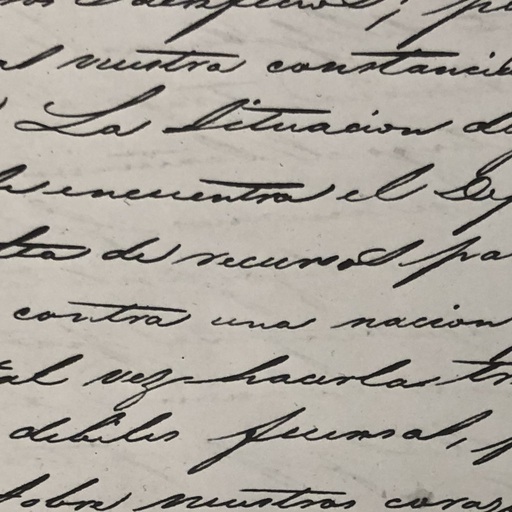 nuestra constancia
La Situacion de
se encuentra el
de recursos pa
contra una nacion
tal vez hacerla
debiles fuerzas,
sobre nuestros coraz